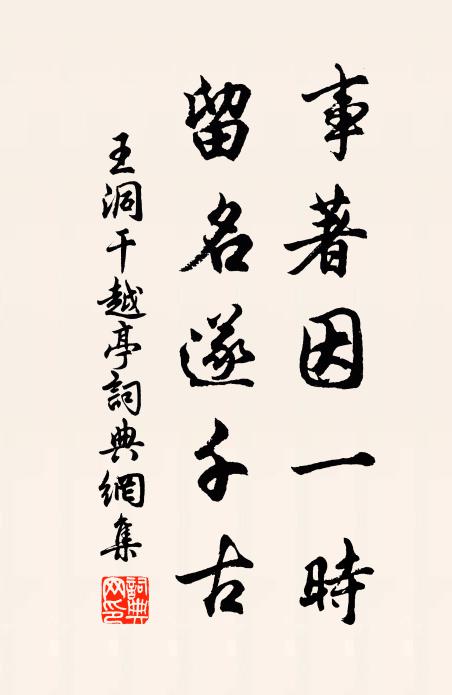 事著因一時
留名遂千古
王洞干越亭詞典網集
詞典网印